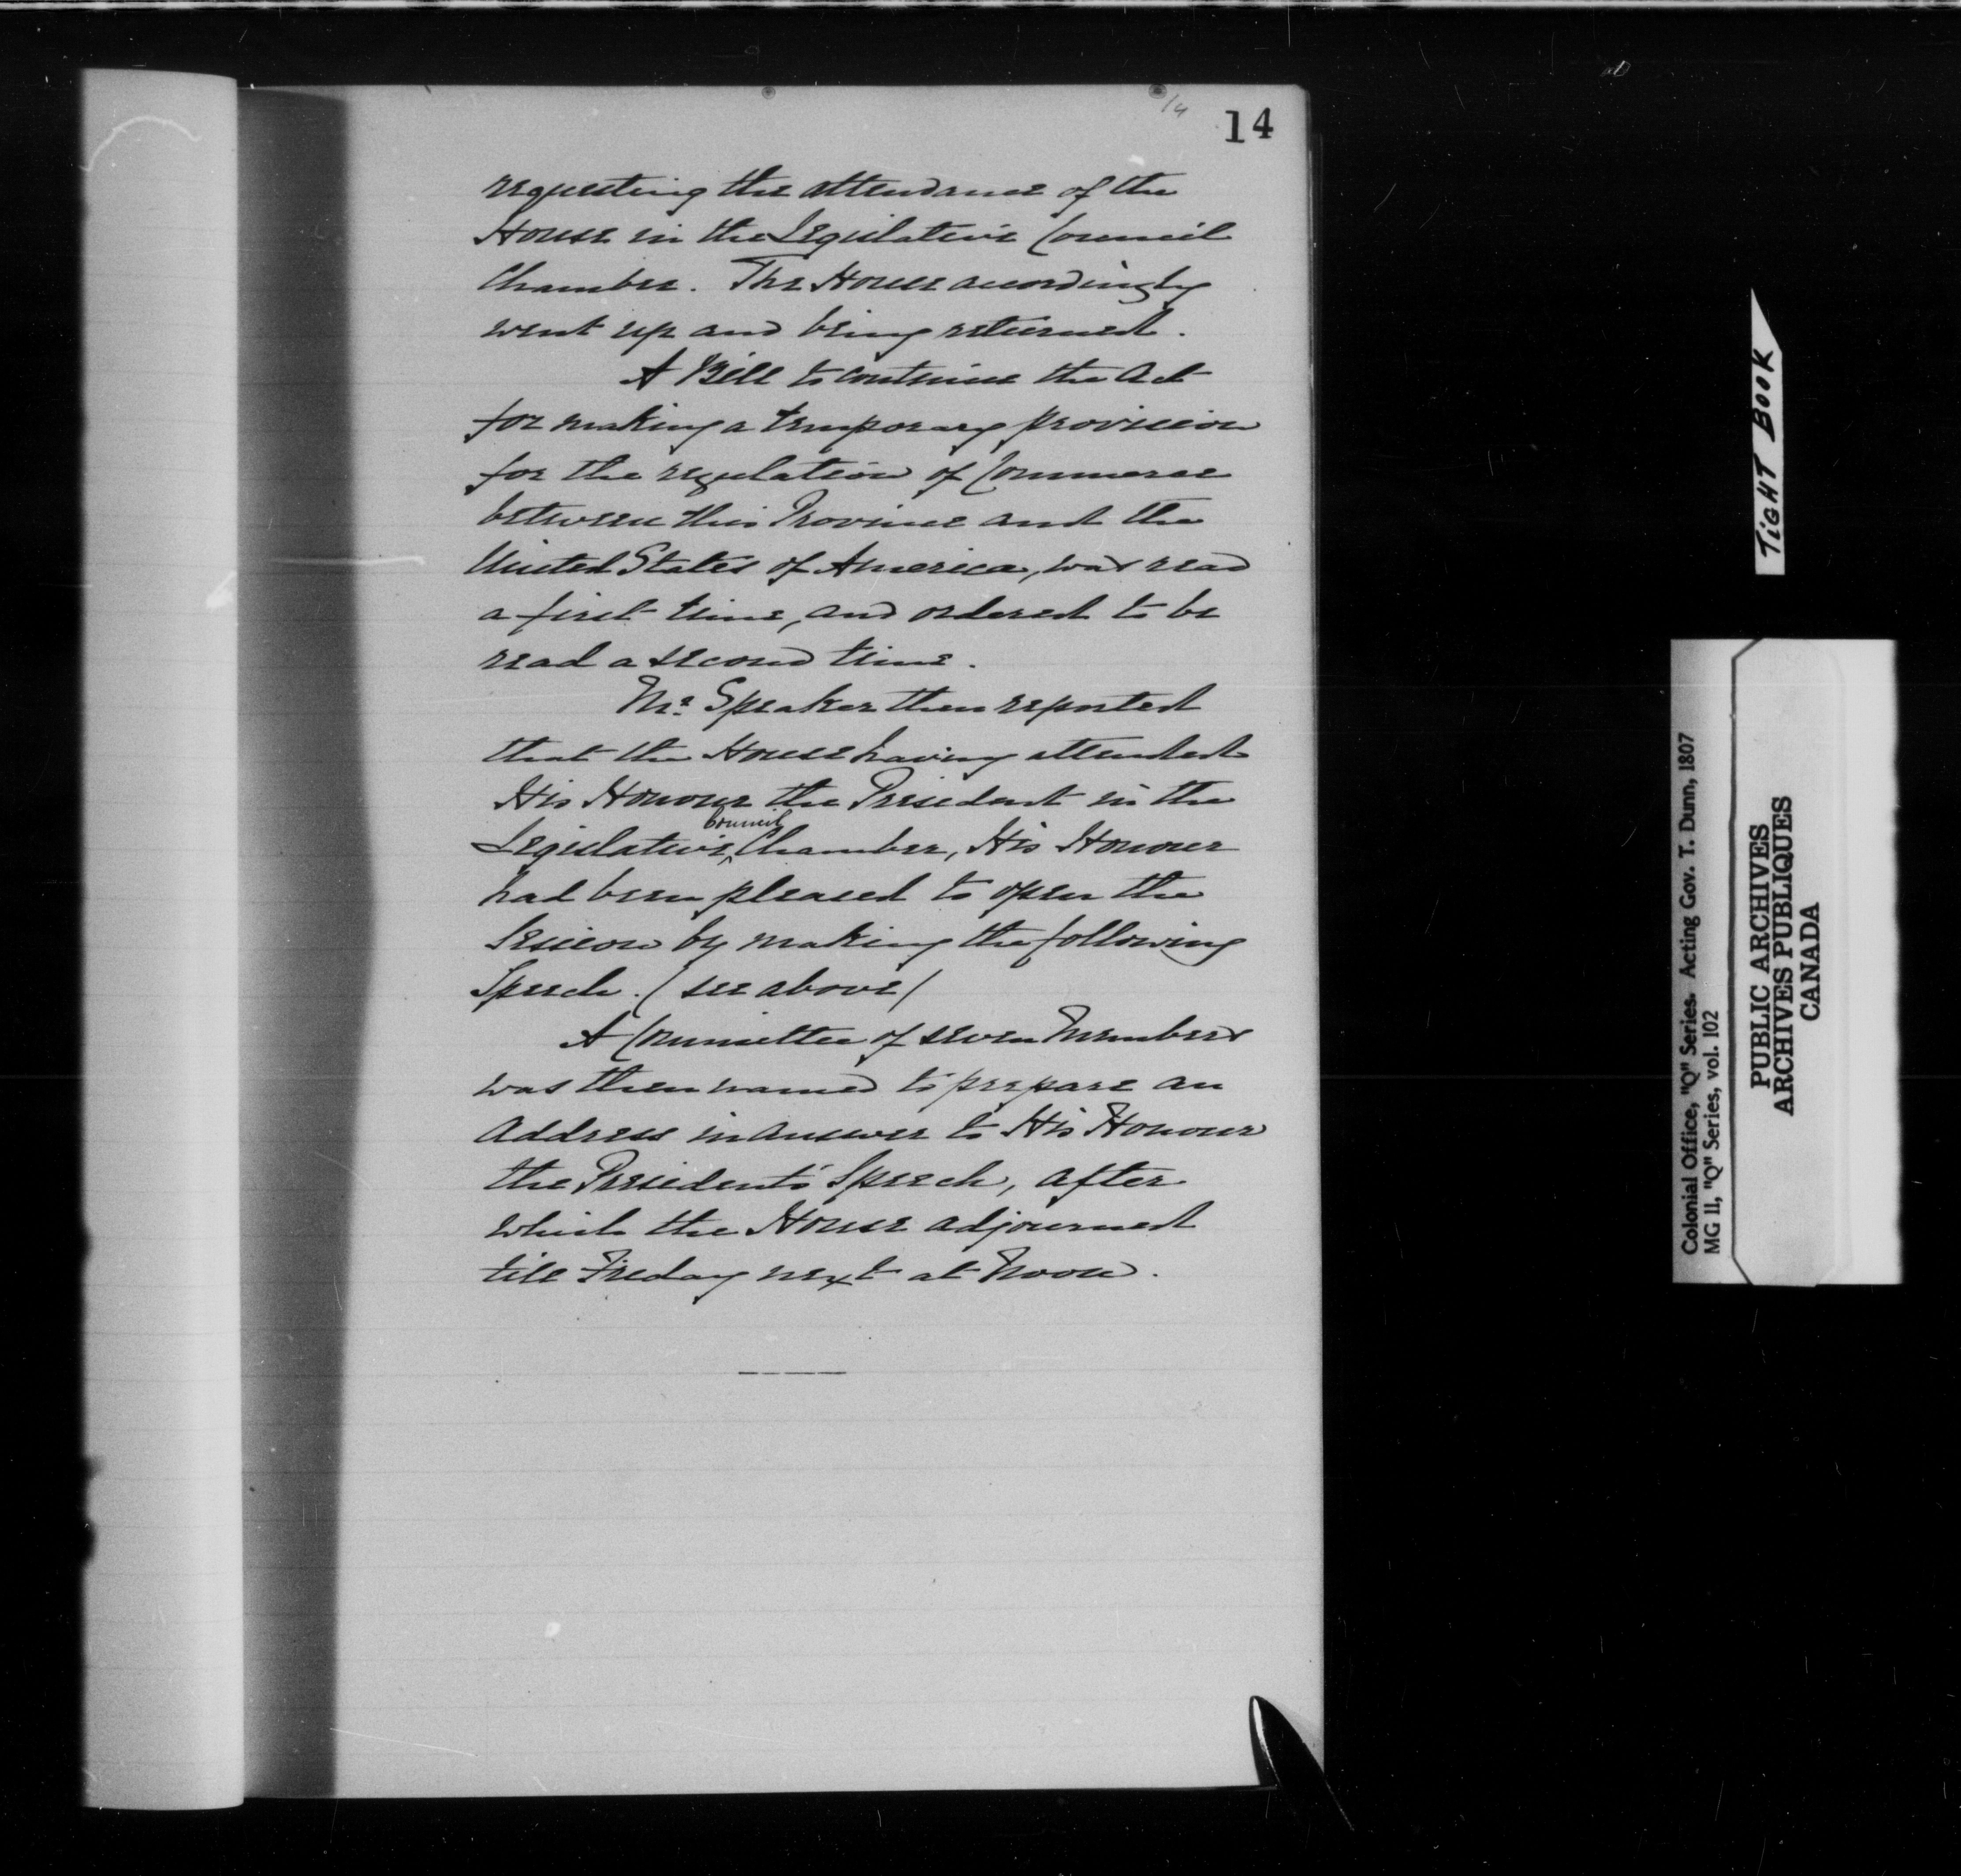 14
14
requesting the attendance of the
House in the Legislative Council
Chamber. The House accordingly
went up and being returned.
A Bill to continue the Act
for making a temporary provision
for the regulation of Commerce
between this Province and the
United States of America, was read
a first time, and ordered to be
read a second time.
Mr. Speaker then reported
that the House having attended
His Honour the President in the
Council
Legislative Chamber, His Honour
had been pleased to open the
Session by making the following
Speech. (see above)
A Committee of seven Members
was then named to prepare an
Address in answer to His Honour
the President's Speech, after
which the House adjourned
till Friday next at Noon.
TIGHT BOOK
Colonial Office, "Q" Series. Acting Gov. T. Dunn, 1807
MG 11, "Q" Series, vol. 102
PUBLIC ARCHIVES
ARCHIVES PUBLIQUES
CANADA